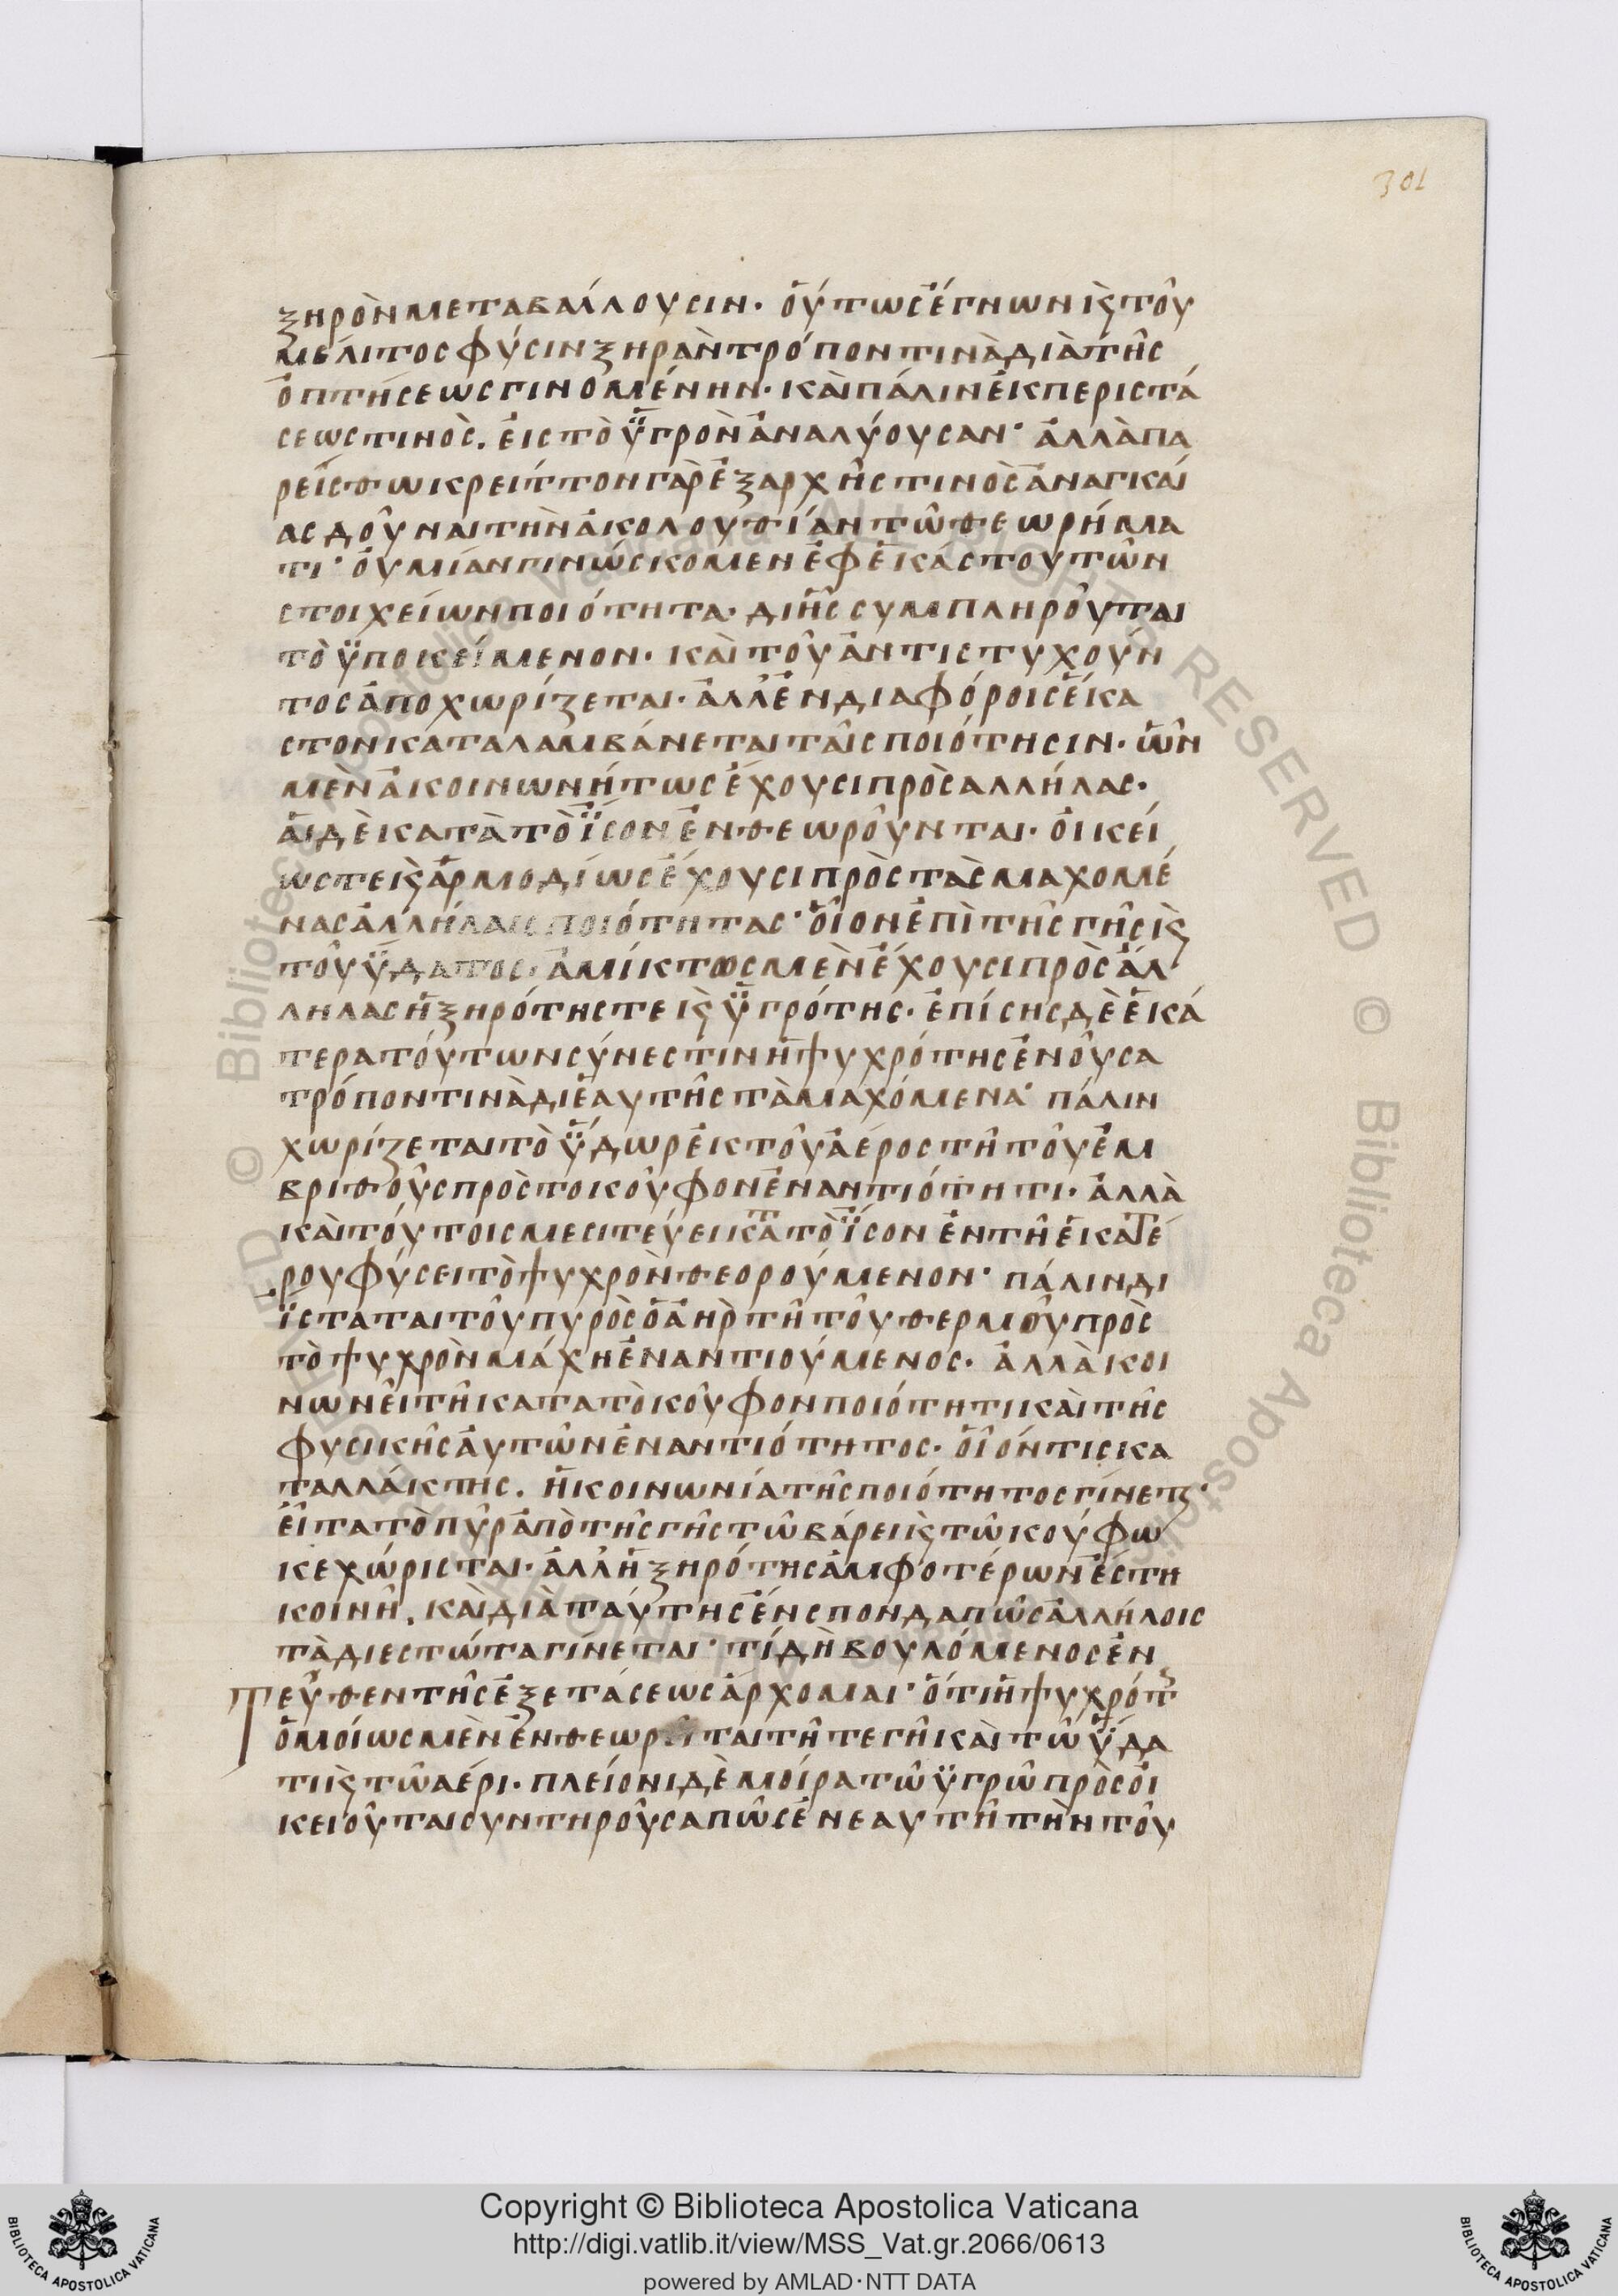 301
ξηρὸν μεταβαίλουσιν· οὕτως ἔγνων κ(αὶ) τοῦ
μέλιτος φύσιν ξηρὰν τρόπον τινὰ διὰ τῆς
ὀπτήσεως γινομένην· καὶ πάλιν ἐκ περιστά
σεως τινὸς. εἰς τὸ ὑγρὸν ἀναλύουσαν· ἀλλὰ πα
ρείσθω κρεῖττον γὰρ ἐξ ἀρχῆς τινὸς ἀναγκαί
ας δοῦναι τὴν ἀκολουθίαν τῶ θεωρήμα
τι· οὐ μίαν γινώσκομεν ἐφ ἑκάστου τῶν
στοιχείων ποιότητα· δι ἧς συμπληροῦται
τὸ ὑποκείμενον· καὶ τοῦ ἀντιστυχοῦν
τος ἀποχωρίζεται· ἀλλ ἐν διαφόροις ἕκα
στον καταλαμβάνεται ταῖς ποιότησιν· ὧν
μὲν ἀκοινωνήτως ἔχουσι πρὸς αλλήλας·
αἱ δὲ κατὰ τὸ ἴσον ἐνθεωροῦνται· οἰκεί
ως τε κ(αὶ) ἁρμοδίως ἔχουσι πρὸς τὰς μαχομέ
νας ἀλλήλαις ποιότητας· οἷον ἐπὶ τῆς γῆς κ(αὶ)
τοῦ ὕδατος· ἀμίκτως μὲν ἔχουσι πρὸς ἀλ
λήλας ἡ ξηρότης τε κ(αὶ) ὑγρότης· ἐπίσης δὲ ἑκά
τερα τούτων σύνεστιν ἡ ψυχρότης ἑνοῦσα
τρόπον τινὰ δι ἑαυτῆς τὰ μαχόμενα· πάλιν
χωρίζεται τὸ ὕδωρ ἐκ τοῦ ἀέρος τῆ τοῦ ἐμ
βριθοῦς πρὸς το κοῦφον ἐναντιότητι· ἀλλὰ
καὶ τούτοις μεσιτεύει κατὰ τὸ ἴσον ἐν τῆ ἑκατέ
ρου φύσει τὸ ψυχρὸν θεορούμενον· πάλιν δι
ΐσταται τοῦ πυρὸς ὁ ἀὴρ τῆ τοῦ θερμοῦ πρὸς
τὸ ψυχρὸν μάχη ἐναντιούμενος· ἀλλὰ κοι
νωνεῖ τῆ κατα τὸ κοῦφον ποιότητι καὶ τῆς
φυσικῆς αὐτῶν ἐναντιότητος· οἷόν τις κα
ταλλάκτης. ἡ κοινωνία τῆς ποιότητος γίνεται·
εἶτα τὸ πῦρ ἀπὸ τῆς γῆς τῶ βάρει κ(αὶ) τῶ κούφω
κεχώρισται· ἀλλ ἡ ξηρότης ἀμφοτέρων ἐστη
κοινὴ. καὶ διὰ ταύτης ἔνσπονδα πῶς ἀλλήλοις
τὰ διεστῶτα γίνεται· τί δὴ βουλόμενος ἐν
τεῦθεν τῆς ἐξετάσεως ἄρχομαι· ὅτι ἡ ψυχρότης
ὁμοίως μὲν ἐνθεωρεῖται τῆ τε γῆ καὶ τῶ ὕδα
τι κ(αὶ) τῶ αέρι· πλείονι δὲ μοίρα τῶ ὑγρῶ προσοι
κειοῦται συντηροῦσα πῶς ἐν εαυτῆ τὴν τοῦ
© Biblioteca Apostolica Vaticana ALL RIGHTS RESERVED © Biblioteca Apostolica Vaticana ALL RIGHTS RESERVED
BIBLIOTECA APOSTOLICA VATICANA
Copyright © Biblioteca Apostolica Vaticana
http://digi.vatlib.it/view/MSS_Vat.gr.2066/0613
powered by AMLAD·NTT DATA
BIBLIOTECA APOSTOLICA VATICANA